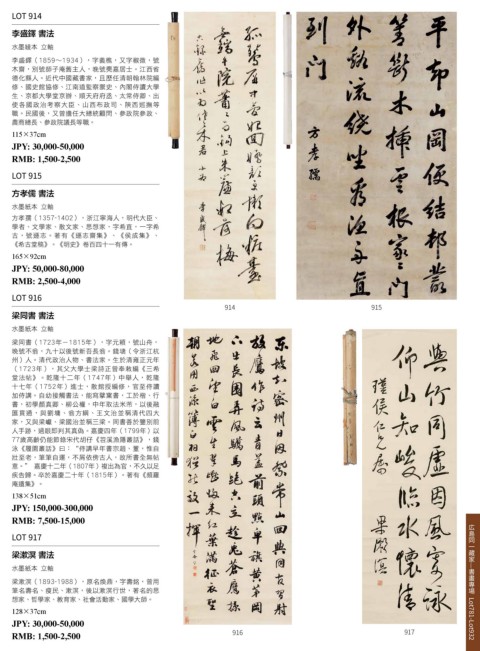 LOT 914
李盛鐸 書法
水墨紙本 立軸
李盛鐸(1859～1934),字義樵,又字椒微,號
木齋,別號師子庵舊主人,晚號麐嘉居士,江西省
德化縣人。近代中國藏書家,且歷任清朝翰林院編
修、國史館協修、江南道監察禦史、內閣侍讀大學
士、京都大學堂京辦、順天府府丞、太常寺卿、出
使各國政治考察大臣、山西布政司、陝西巡撫等
職。民國後,又曾擔任大總統顧問、參政院參政、
農商總長、參政院議長等職。
115×37cm
JPY: 30,000-50,000
RMB: 1,500-2,500
LOT 915
方孝儒 書法
水墨紙本 立軸
方孝孺(1357-1402),浙江寧海人,明代大臣、
學者、文學家、散文家、思想家,字希直,一字希
古,號遜志。著有《遜志齋集》、《侯成集》、
《希古堂稿》,《明史》卷百四十一有傳。
165×92cm
JPY: 50,000-80,000
RMB: 2,500-4,000
LOT 916
梁同書 書法
水墨紙本 立軸
梁同書(1723年－1815年),字元穎,號山舟,
晚號不翁、九十以後號新吾長翁。錢塘(今浙江杭
州)人。清代政治人物、書法家。生於清雍正元年
(1723年),其父大學士梁詩正曾奉敕編《三希
堂法帖》。乾隆十二年(1747年)中舉人,乾隆
十七年(1752年)進士,散館授編修,官至侍讀
加侍講。自幼接觸書法,能寫擘窠書,工於楷、行
書,初學顏真卿、柳公權,中年取法米芾,以後融
匯貫通,與劉墉、翁方綱、王文治並稱清代四大
家,又與梁巘、梁國治並稱三梁。同書善於鑒別前
人手跡,過眼即判其真偽。嘉慶四年(1799年)以
77歲高齡仍能節錄宋代胡仔《苕溪漁隱叢話》,錢
泳《履園叢話》曰:“侍講早年書宗趙、董,惟自
壯至老,筆筆自運,不屑依傍古人,故所書全無帖
意。”嘉慶十二年(1807年)複出為官,不久以足
疾告歸。卒於嘉慶二十年(1815年)。著有《頻羅
庵遺集》。
138×51cm
JPY: 150,000-300,000
RMB: 7,500-15,000
LOT 917
梁漱溟 書法
水墨紙本 立軸
梁漱溟(1893-1988),原名煥鼎,字壽銘,曾用
筆名壽名、瘦民、漱溟,後以漱溟行世。著名的思
想家、哲學家、教育家、社會活動家、國學大師。
128×37cm
JPY: 30,000-50,000
RMB: 1,500-2,500
914
平却山岡便結邨叢
篁斷木插雲根家家門
外谿流繞坐看漁舟直
到門
方孝孺
915
東坡知密州日因祭常山回與同官習射
放鷹作詩云青蓋前頭點皁旗黃茅岡
下出長圍弄風驕馬跑空立趁兔蒼鷹掠
地飛回望白雲生翠巘歸來紅葉滿征衣聖
朝若用西涼簿白羽猶能效一揮
916
與竹同虛因風寄詠
仰山知峻臨水懷清
瑾侯仁兄屬
梁漱溟
917
Lot781-Lot932